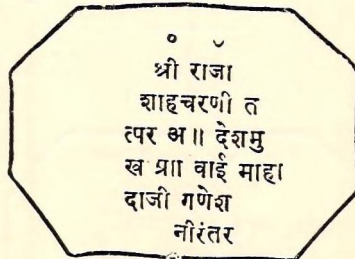 श्री राजा
शाहूचरणी त
त्पर अ॥ देशमु
ख प्रा॥ वाई माहा
दाजी गणेश
नीरंतर